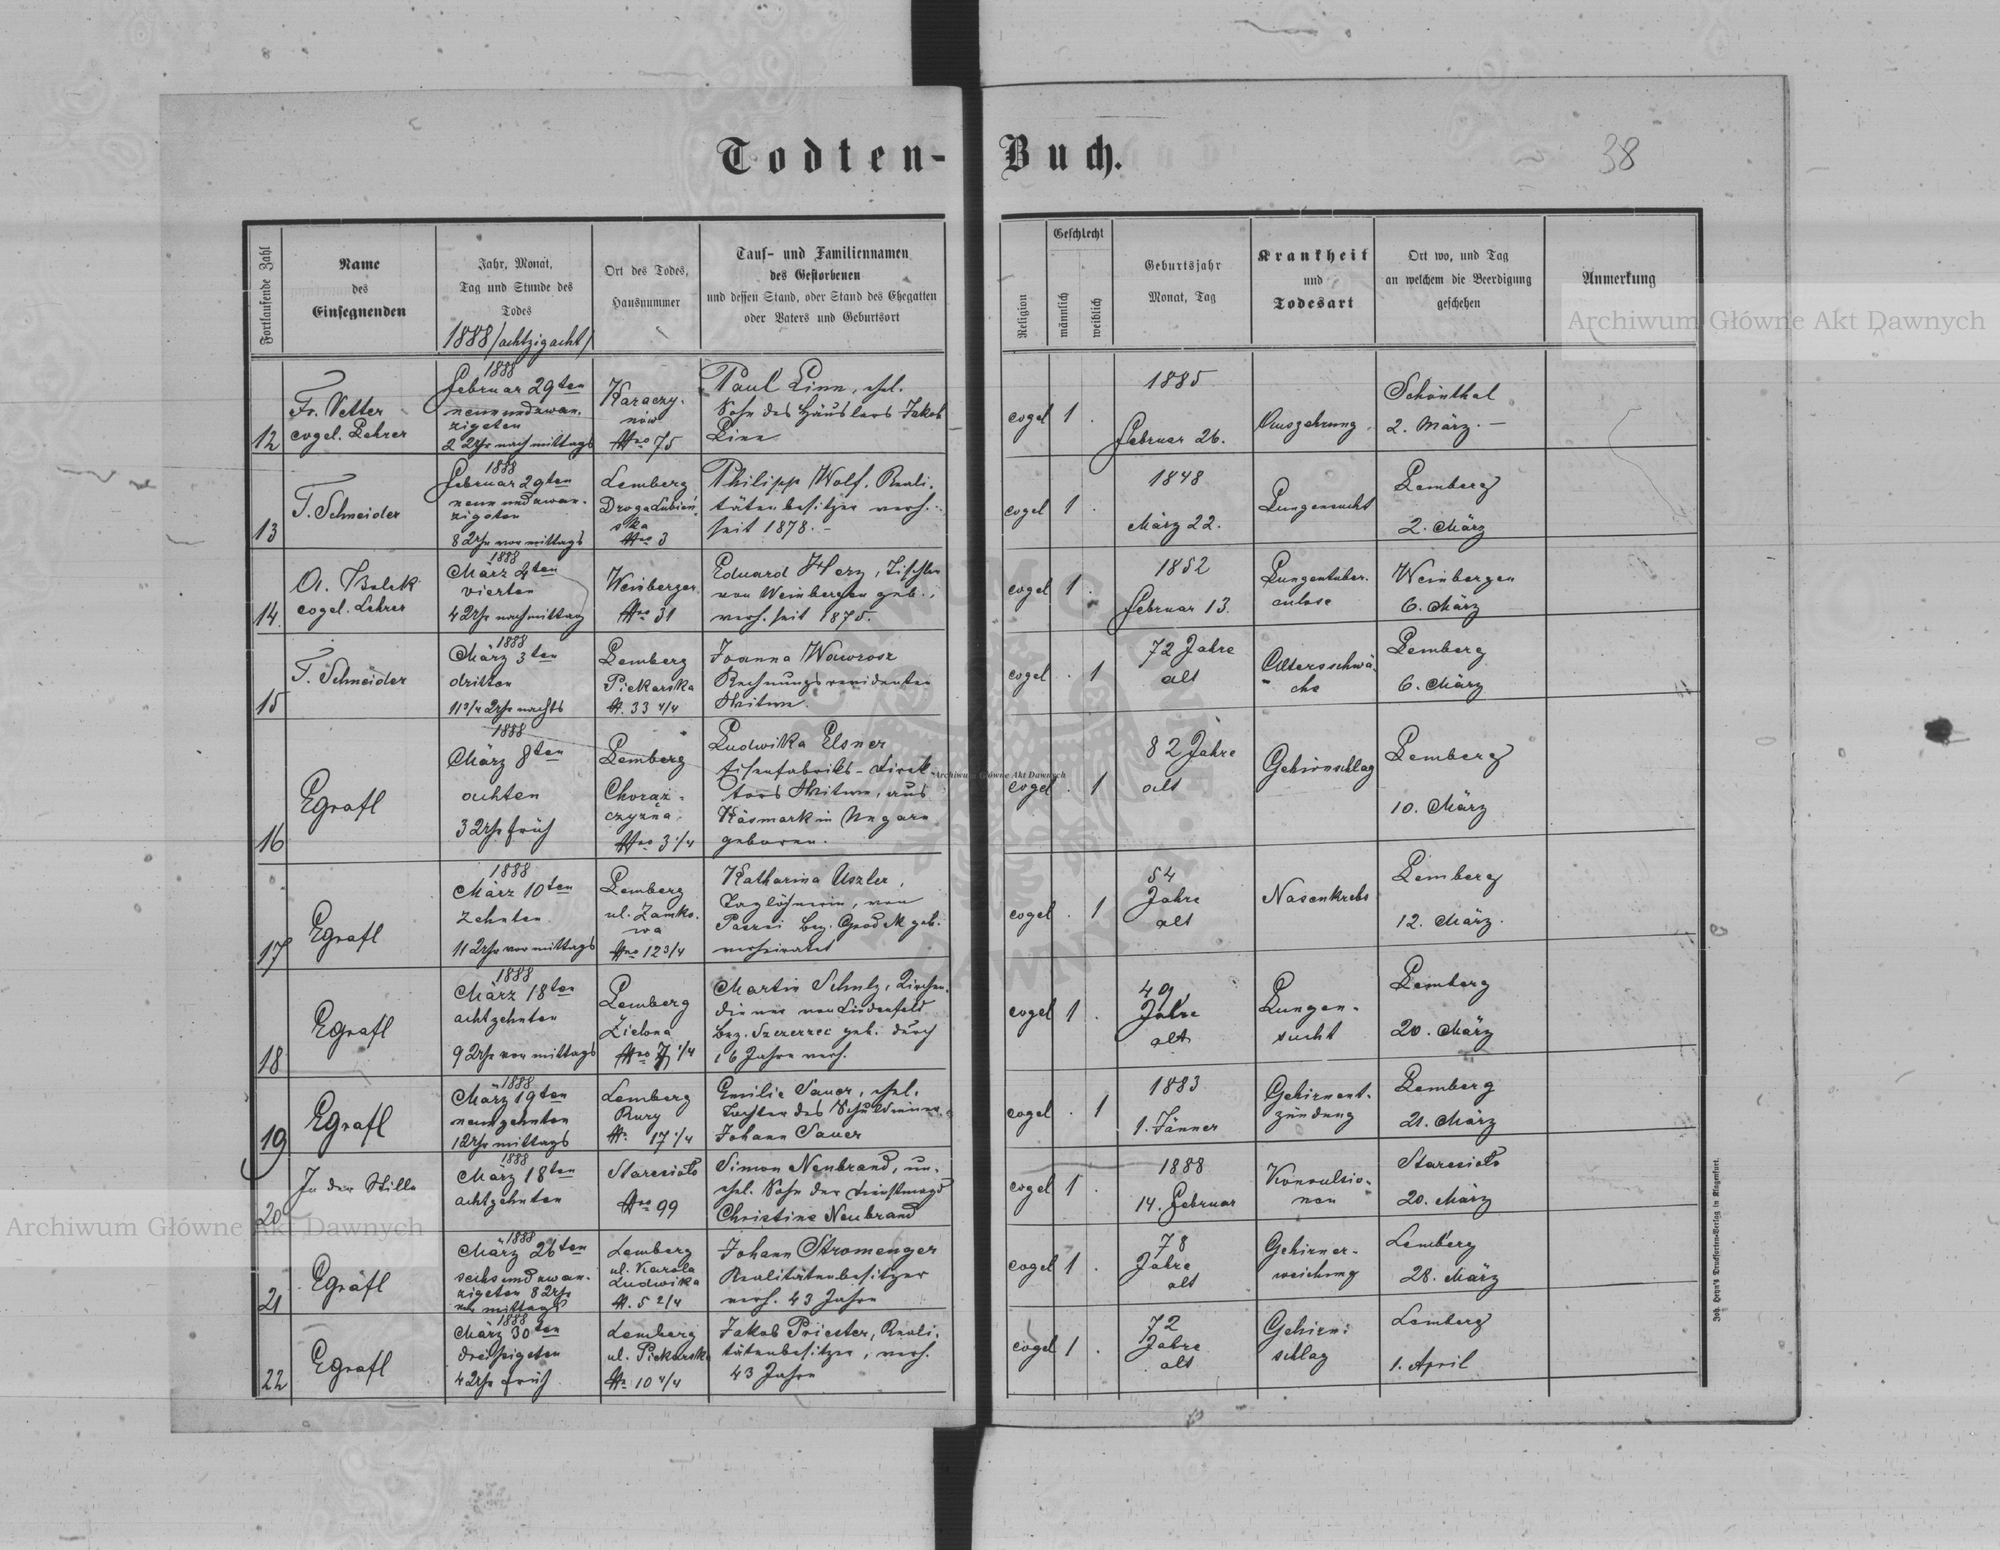 Todten-Buch.
38
Fortlaufende Zahl
Name
des
Einsegnenden
Jahr, Monat,
Tag und Stunde des
Todes
1888 /achtzigacht/
Ort des Todes,
Hausnummer
Tauf- und Familiennamen
des Gestorbenen
und dessen Stand, oder Stand des Ehegatten
oder Vaters und Geburtsort
Religion
Geschlecht
männlich
weiblich
Geburtsjahr
Monat, Tag
Krankheit
und
Todesart
Ort wo, und Tag
an welchem die Beerdigung
geschehen
Anmerkung
12
Fr. Vetter
evgel. Lehrer
1888
Februar 29ten
neunundzwan-
zigsten
2 Uhr nachmittags
Karaczy-
nów
Nro 75
Paul Linn, ehel.
Sohn des Häuslers Jakob
Linn
evgel
1 .
1885
Februar 26.
Auszehrung
Schönthal
2. März. —
13
T. Schneider
1888
Februar 29ten
neunundzwan-
zigsten
8 Uhr vormittags
Lemberg
Droga Lubień-
ska
Nro 3
Philipp Wolf, Reali-
tätenbesitzer verh.
seit 1878. -
evgel
1 .
1848
März 22.
Lungensucht
Lemberg
2. März
14
A. Bolek
evgel. Lehrer
1888
März 4ten
vierten
4 Uhr nachmittag
Weinbergen
Nro 31
Eduard Herz, Tischler
von Weinbergen geb.,
verh. seit 1875.
evgel
1 .
1852
Februar 13.
Lungentuber-
culose
Weinbergen
6. März
15
T. Schneider
1888
März 3ten
dritten
11 3/4 Uhr nachts
Lemberg
Piekarska
N. 33 4/4
Joanna Wawrosz
Rechnungsrevidenten
Witwe.
evgel
. 1
72 Jahre
alt
Altersschwä-
che
Lemberg
6. März
16
Egrafl
1888
März 8ten
achten
3 Uhr früh
Lemberg
Chorąż-
czyzna
Nro 3 1/4
Ludwika Elsner
Eisenfabriks-Direk-
tors Witwe, aus
Käsmark in Ungarn
geboren.
evgel
. 1
82 Jahre
alt
Gehirnschlag
Lemberg
10. März
17
Egrafl
1888
März 10ten
zehnten
11 Uhr vormittags
Lemberg
ul. Zamko-
wa
Nro 12 3/4
Katharina Uszler,
Taglöhnerin, von
bez. Grodek geb.
verheiratet
evgel
. 1
54
Jahre
alt
Nasenkrebs
Lemberg
12. März.
18
Egrafl
1888
März 18ten
achtzehnten
9 Uhr vormittags
Lemberg
Zielona
Nro 7 1/4
Martin Schulz, Kirchen-
diener von Lindenfeld
bez. Szczerzec geb. durch
16 Jahre verh.
evgel
1 .
49
Jahre
alt
Lungen-
sucht
Lemberg
20. März
19
Egrafl
1888
März 19ten
neunzehnten
1 Uhr mittags
Lemberg
Rury
N. 17 1/4
Emilie Sauer, ehel.
Tochter des Schuldieners
Johann Sauer
evgel
. 1
1883
1. Jänner
Gehirnent-
zündung
Lemberg
21. März
20
In der Stille
1888
März 18ten
achtzehnten
Staresioło
Nro 99
Simon Neubrand, un-
ehel. Sohn der Dienstmagd
Christine Neubrand
evgel
1 .
1888
14. Februar
Konvulsio-
nen
Staresioło
20. März
21
Egrafl
1888
März 26ten
sechsundzwan-
zigsten 8 Uhr
vor mittags
Lemberg
ul. Karola
Ludwika
N. 5 2/4
Johann Stromenger
Realitätenbesitzer
verh. 43 Jahre
evgel
1 .
78
Jahre
alt
Gehirner-
weichung
Lemberg
28. März
22
Egrafl
1888
März 30ten
dreißigsten
4 Uhr früh
Lemberg
ul. Piekarska
N. 10 4/4
Jakob Priester, Reali-
tätenbesitzer, verh.
43 Jahre
evgel
1 .
72
Jahre
alt
Gehirn-
schlag
Lemberg
1. April
Joh. Heyn's Drucksorten-Verlag in Klagenfurt.
Archiwum Główne Akt Dawnych
Archiwum Główne Akt Dawnych
Archiwum Główne Akt Dawnych